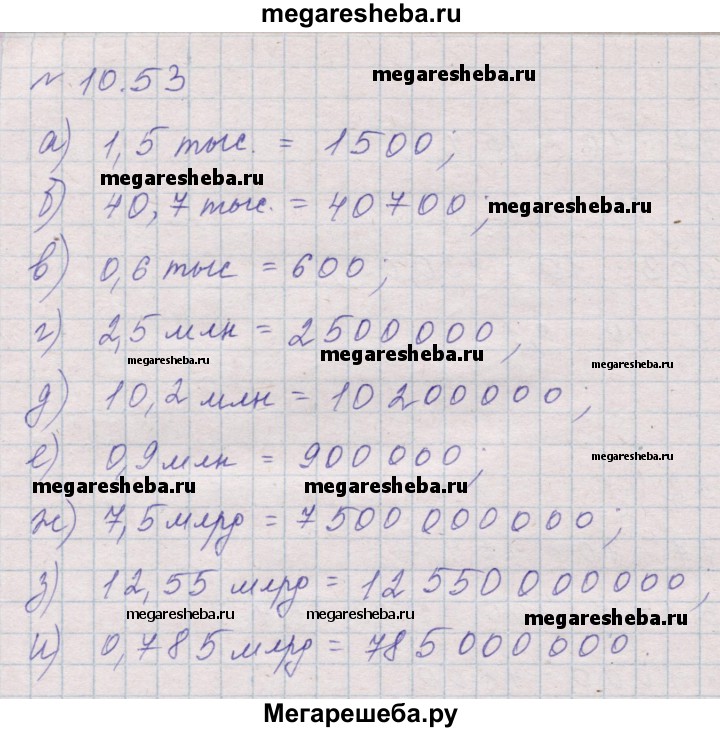 megaresheba.ru
№ 10.53 megaresheba.ru
а) 1,5 тыс. = 1500;
megaresheba.ru
б) 40,7 тыс. = 40700; megaresheba.ru
в) 0,6 тыс = 600;
г) 2,5 млн = 2500000;
megaresheba.ru megaresheba.ru megaresheba.ru
д) 10,2 млн = 10200000;
е) 0,9 млн = 900000; megaresheba.ru
megaresheba.ru megaresheba.ru
ж) 7,5 млрд = 7500 000000;
з) 12,55 млрд = 12 550 000 000;
megaresheba.ru megaresheba.ru megaresheba.ru
и) 0,785 млрд = 785000 000.
Мегарешеба.ру